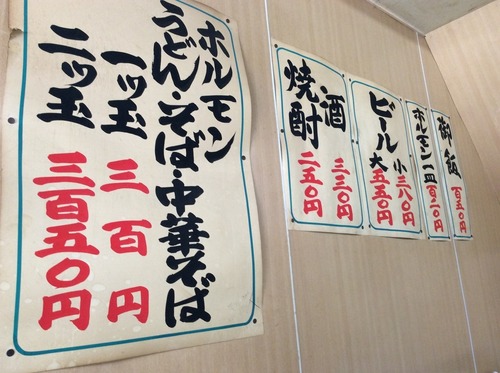 御飯 百五〇円
ホルモン一皿
ビール
小三八〇円
大五五〇円
酒 三三〇円
焼酎 二五〇円
ホルモン
うどん・そば・中華そば
一ッ玉 三百円
二ッ玉 三百五〇円